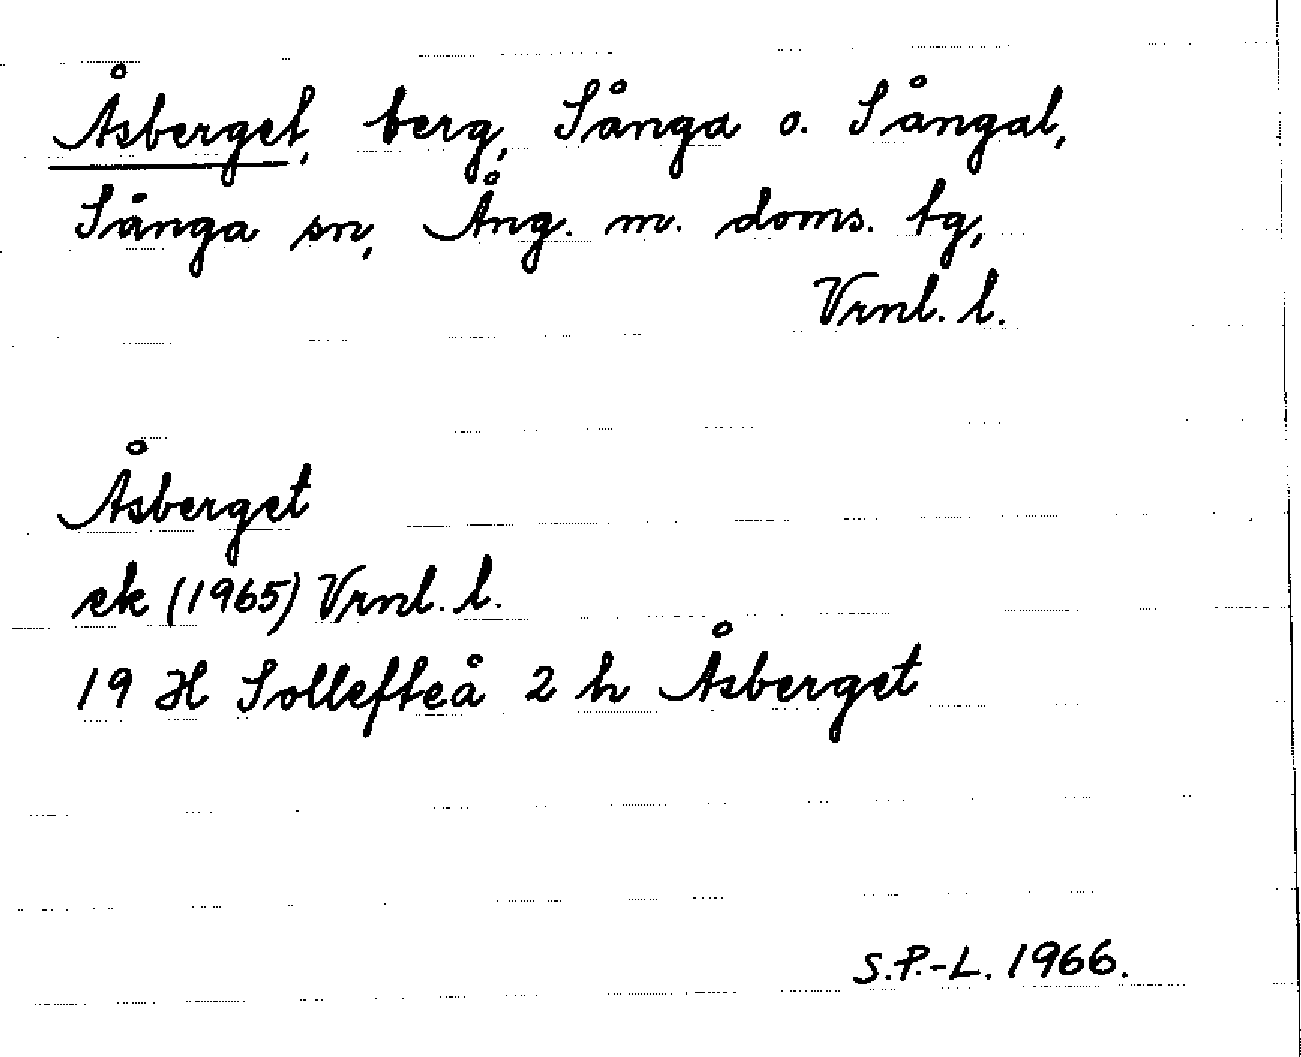 Åsberget, berg, Sånga o. Sångal,
Sånga sn, Ång. m. doms. tg,
Vrnl. l.
Åsberget
ek (1965) Vrnl. l.
19 H Sollefteå 2 h Åsberget
S.P.-L. 1966.